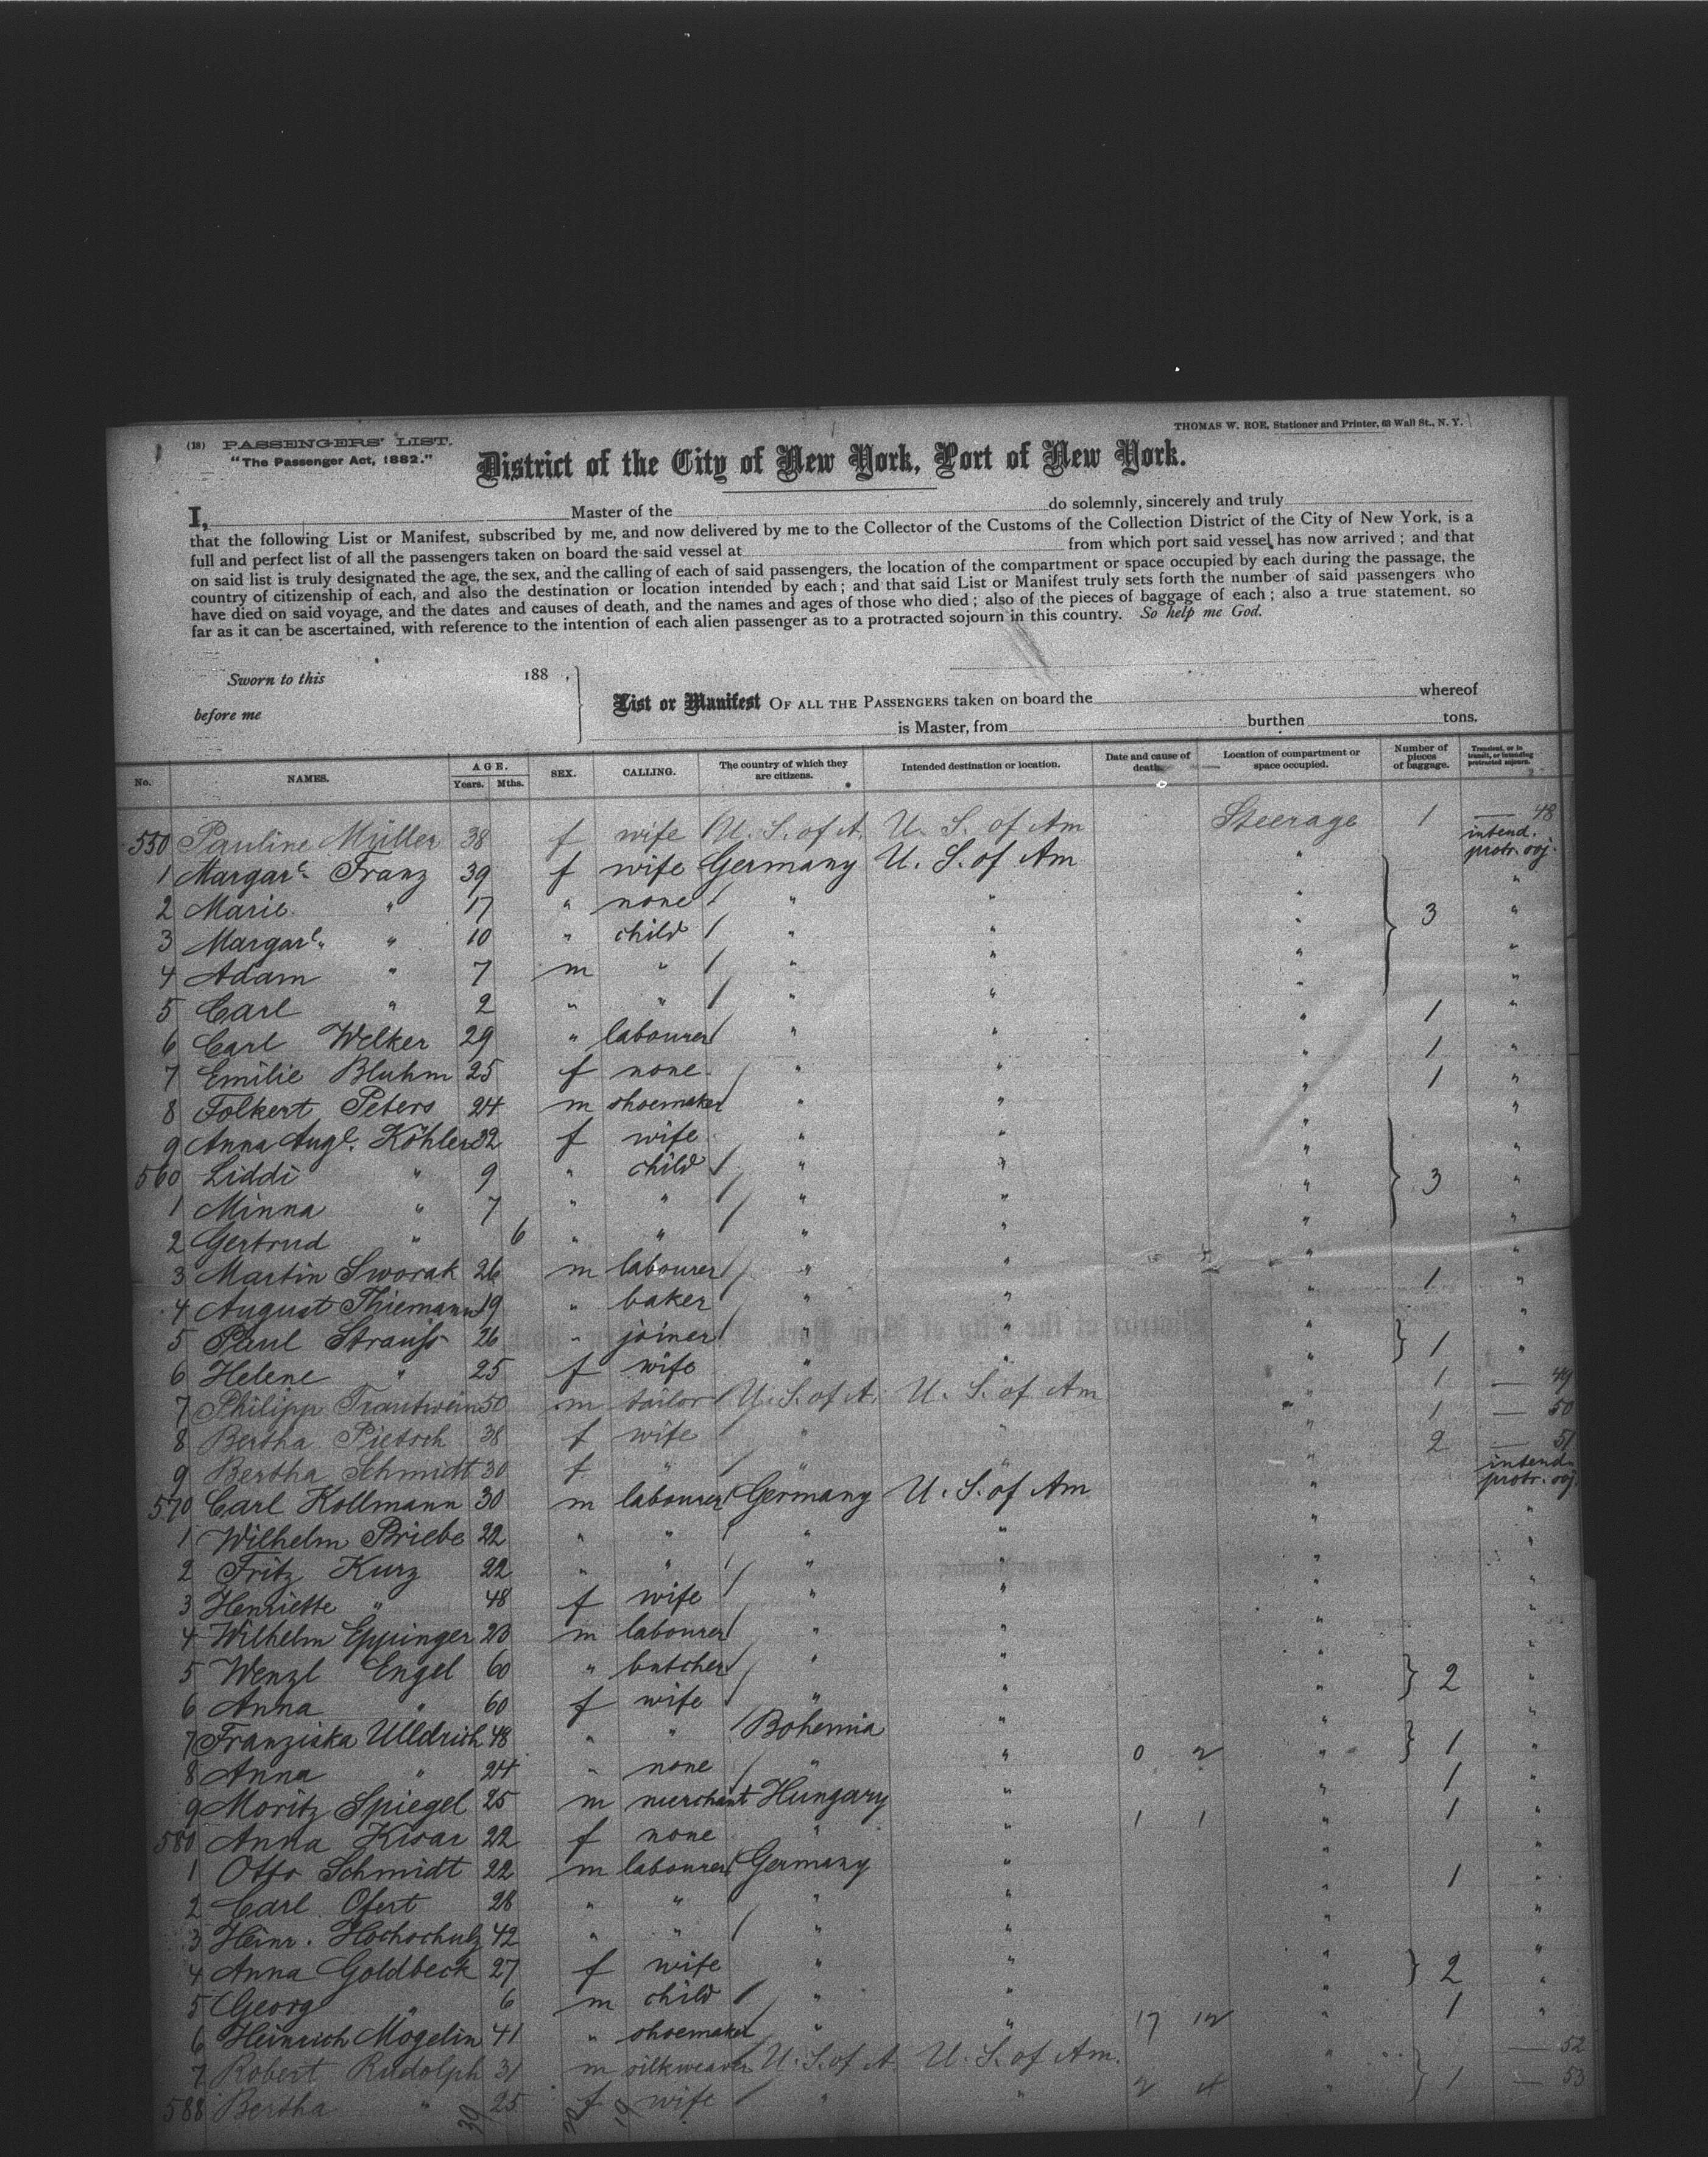 (18) PASSENGERS' LIST.
"The Passenger Act, 1882."
THOMAS W. ROE, Stationer and Printer, 63 Wall St., N. Y.
District of the City of New York, Port of New York.
I, Master of the do solemnly, sincerely and truly
that the following List or Manifest, subscribed by me, and now delivered by me to the Collector of the Customs of the Collection District of the City of New York, is a
full and perfect list of all the passengers taken on board the said vessel at from which port said vessel has now arrived; and that
on said list is truly designated the age, the sex, and the calling of each of said passengers, the location of the compartment or space occupied by each during the passage, the
country of citizenship of each, and also the destination or location intended by each; and that said List or Manifest truly sets forth the number of said passengers who
have died on said voyage, and the dates and causes of death, and the names and ages of those who died; also of the pieces of baggage of each; also a true statement, so
far as it can be ascertained, with reference to the intention of each alien passenger as to a protracted sojourn in this country. So help me God.
Sworn to this 188 ,
before me
List or Manifest OF ALL THE PASSENGERS taken on board the whereof
is Master, from burthen tons.
No. NAMES. AGE. Years. Mths. SEX. CALLING. The country of which they are citizens. Intended destination or location. Date and cause of death. Location of compartment or space occupied. Number of pieces of baggage. Transient, or in transit, or intending protracted sojourn.
550 Pauline Müller 38 f wife U. S. of A. U. S. of Am Steerage 1 — 48
1 Margar. Franz 39 f wife Germany U. S. of Am " intend. protr. soj.
2 Marie " 17 " none " " " "
3 Margar. " 10 " child " " " 3 "
4 Adam " 7 m " " " " "
5 Carl " 2 " " " " " "
6 Carl Welker 29 " labourer " " " 1 "
7 Emilie Bluhm 25 f none " " " 1 "
8 Folkert Peters 24 m shoemaker " " " 1 "
9 Anna Aug. Köhler 32 f wife " " " "
560 Liddi " 9 " child " " " "
1 Minna " 7 " " " " " 3 "
2 Gertrud " 6 " " " " " "
3 Martin Sworak 26 m labourer " " " "
4 August Thiemann 19 " baker " " " 1 "
5 Paul Strauss 26 " joiner " " " "
6 Helene " 25 f wife " " " 1 "
7 Philipp Trautwein 50 m tailor U. S. of A. U. S. of Am " 1 — 49
8 Bertha Pietsch 38 f wife " " " 1 — 50
9 Bertha Schmidt 30 f " " " " 2 — 51
570 Carl Kollmann 30 m labourer Germany U. S. of Am " intend. protr. soj.
1 Wilhelm Priebe 22 " " " " " "
2 Fritz Kurz 22 " " " " " "
3 Henriette " 48 f wife " " " "
4 Wilhelm Eppinger 20 m labourer " " " "
5 Wenzl Engel 60 " butcher " " " "
6 Anna " 60 f wife " " " 2 "
7 Franziska Ulldrich 48 " " Bohemia " " "
8 Anna " 24 " none " " 0 2 " 1 "
9 Moritz Spiegel 25 m merchant Hungary " " 1 "
580 Anna Kisar 22 f none " " 1 1 " 1 "
1 Otto Schmidt 22 m labourer Germany " " "
2 Carl Ofert 28 " " " " " 1 "
3 Heinr. Hochschulz 42 " " " " " "
4 Anna Goldbeck 27 f wife " " " "
5 Georg " 6 m child " " " 2 "
6 Heinrich Mögelin 41 " shoemaker " " 17 12 " 1 "
7 Robert Rudolph 31 m silkweaver U. S. of A U. S. of Am. " — 52
588 Bertha " 25 f wife " " 2 4 " 1 — 53
39 20 19